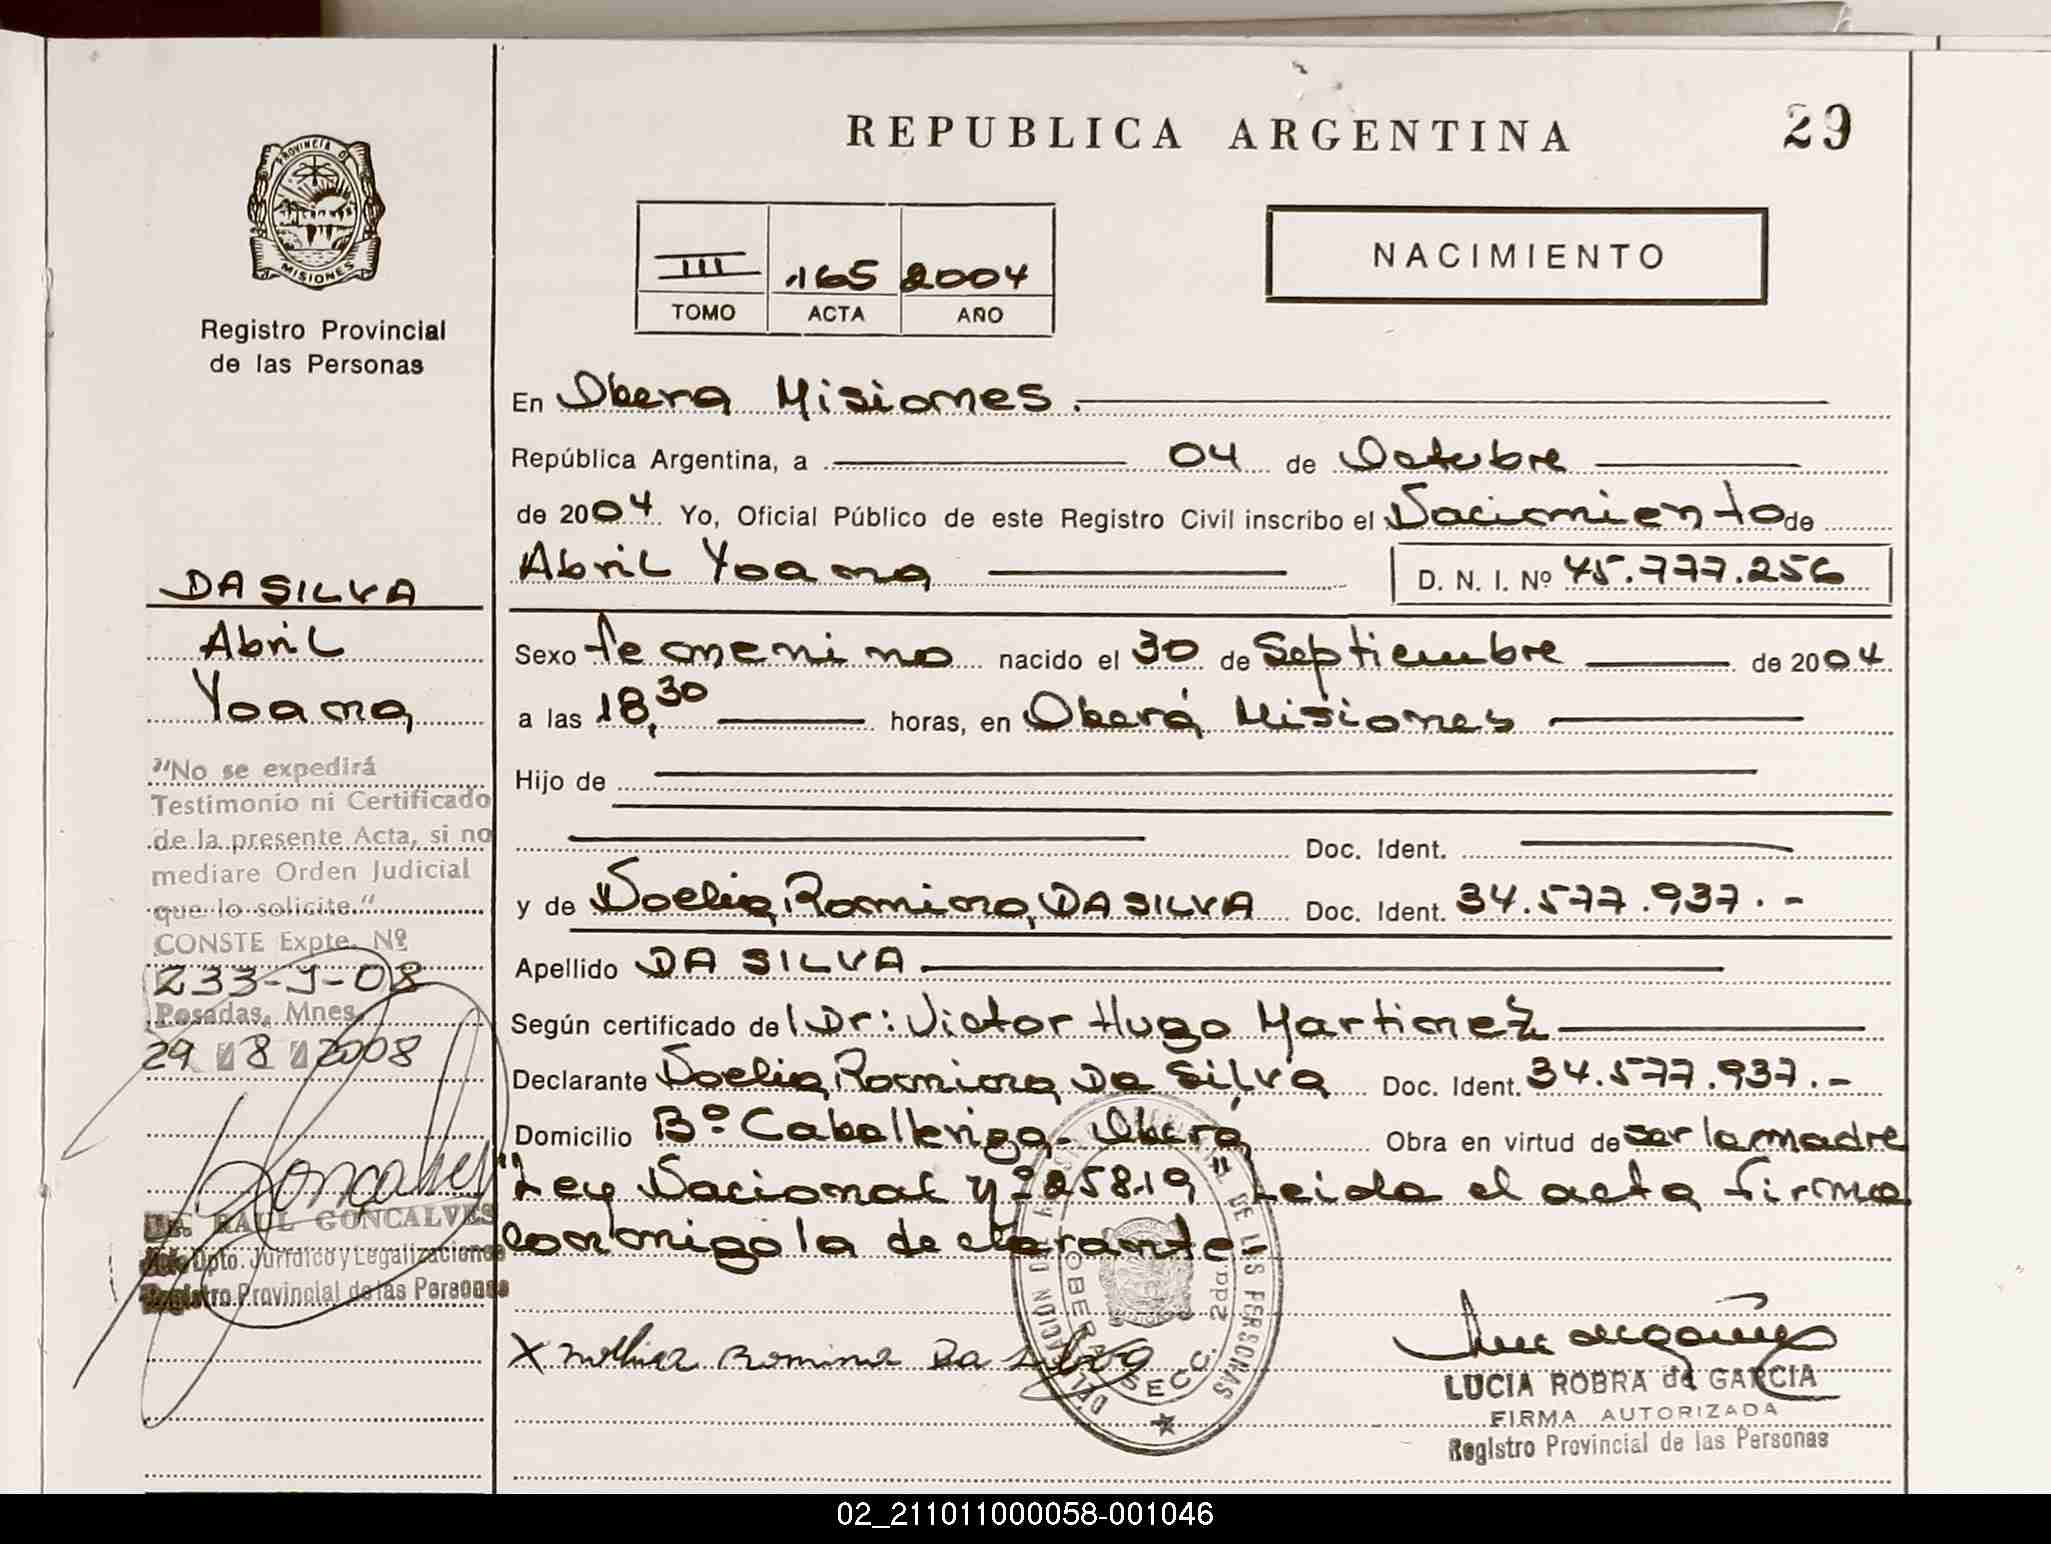 REPUBLICA ARGENTINA
29
PROVINCIA DE
MISIONES
Registro Provincial
de las Personas
III 165 2004
TOMO ACTA AÑO
NACIMIENTO
En Obera Misiones.
República Argentina, a 04 de Octubre
de 2004 Yo, Oficial Público de este Registro Civil inscribo el Nacimiento de
Abril Yoana D. N. I. Nº 45.777.256
Sexo femenino nacido el 30 de Septiembre de 2004
a las 18,30 horas, en Oberá Misiones
Hijo de
Doc. Ident.
y de Noelia Romina DA SILVA Doc. Ident. 34.577.937.-
Apellido DA SILVA
Según certificado del Dr: Victor Hugo Martinez
Declarante Noelia Romina Da Silva Doc. Ident. 34.577.937.-
Domicilio Bº Caballeriza - Oberá Obra en virtud de ser la madre
"Ley Nacional Nº 25819" Leida el acta firma
conmigo la declarante.
DA SILVA
Abril
Yoana
"No se expedirá
Testimonio ni Certificado
de la presente Acta, si no
mediare Orden Judicial
que lo solicite."
CONSTE Expte. Nº
233-J-08
Posadas, Mnes.
29 8 2008
Goncalves
RAUL GONCALVES
Dpto. Jurídico y Legalizaciones
Registro Provincial de las Personas
X Noelia Romina Da Silva
DE LAS PERSONAS
OBERA SECC. 2da.
LUCIA ROBRA de GARCIA
FIRMA AUTORIZADA
Registro Provincial de las Personas
02_211011000058-001046